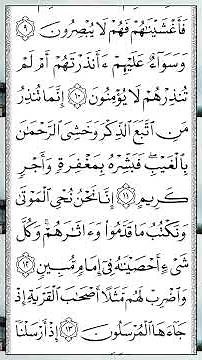 فَأَغْشَيْنَٰهُمْ فَهُمْ لَا يُبْصِرُونَ ٩
وَسَوَآءٌ عَلَيْهِمْ ءَأَنذَرْتَهُمْ أَمْ لَمْ
تُنذِرْهُمْ لَا يُؤْمِنُونَ ١٠ إِنَّمَا تُنذِرُ
مَنِ ٱتَّبَعَ ٱلذِّكْرَ وَخَشِىَ ٱلرَّحْمَٰنَ
بِٱلْغَيْبِ فَبَشِّرْهُ بِمَغْفِرَةٍ وَأَجْرٍ
كَرِيمٍ ١١ إِنَّا نَحْنُ نُحْىِ ٱلْمَوْتَىٰ
وَنَكْتُبُ مَا قَدَّمُوا۟ وَءَاثَٰرَهُمْ وَكُلَّ
شَىْءٍ أَحْصَيْنَٰهُ فِىٓ إِمَامٍ مُّبِينٍ ١٢
وَٱضْرِبْ لَهُم مَّثَلًا أَصْحَٰبَ ٱلْقَرْيَةِ إِذْ
جَآءَهَا ٱلْمُرْسَلُونَ ١٣ إِذْ أَرْسَلْنَآ